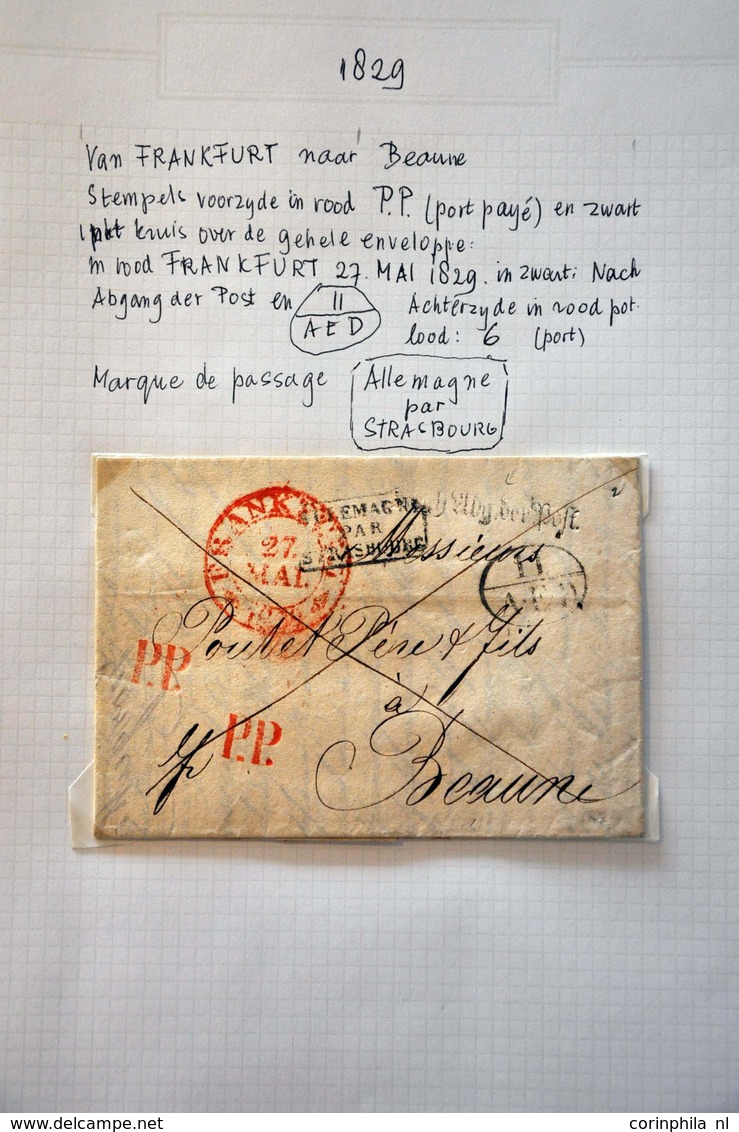 1829
Van FRANKFURT naar Beaune
Stempels voorzyde in rood P.P. (port payé) en zwart
kruis over de gehele enveloppe:
in rood FRANKFURT 27. MAI 1829. in zwart: Nach
Abgang der Post en 11 AED Achterzyde in rood pot-
lood: 6 (port)
Marque de passage Allemagne
par
STRASBOURG
FRANKFURT
27.
MAI.
ALLEMAGNE
PAR
STRASBOURG
Abg. der Post.
11
A.E.D.
Messieurs
Poulet Père & fils
à
Beaune
P.P.
P.P.
www.delcampe.net
corinphila nl